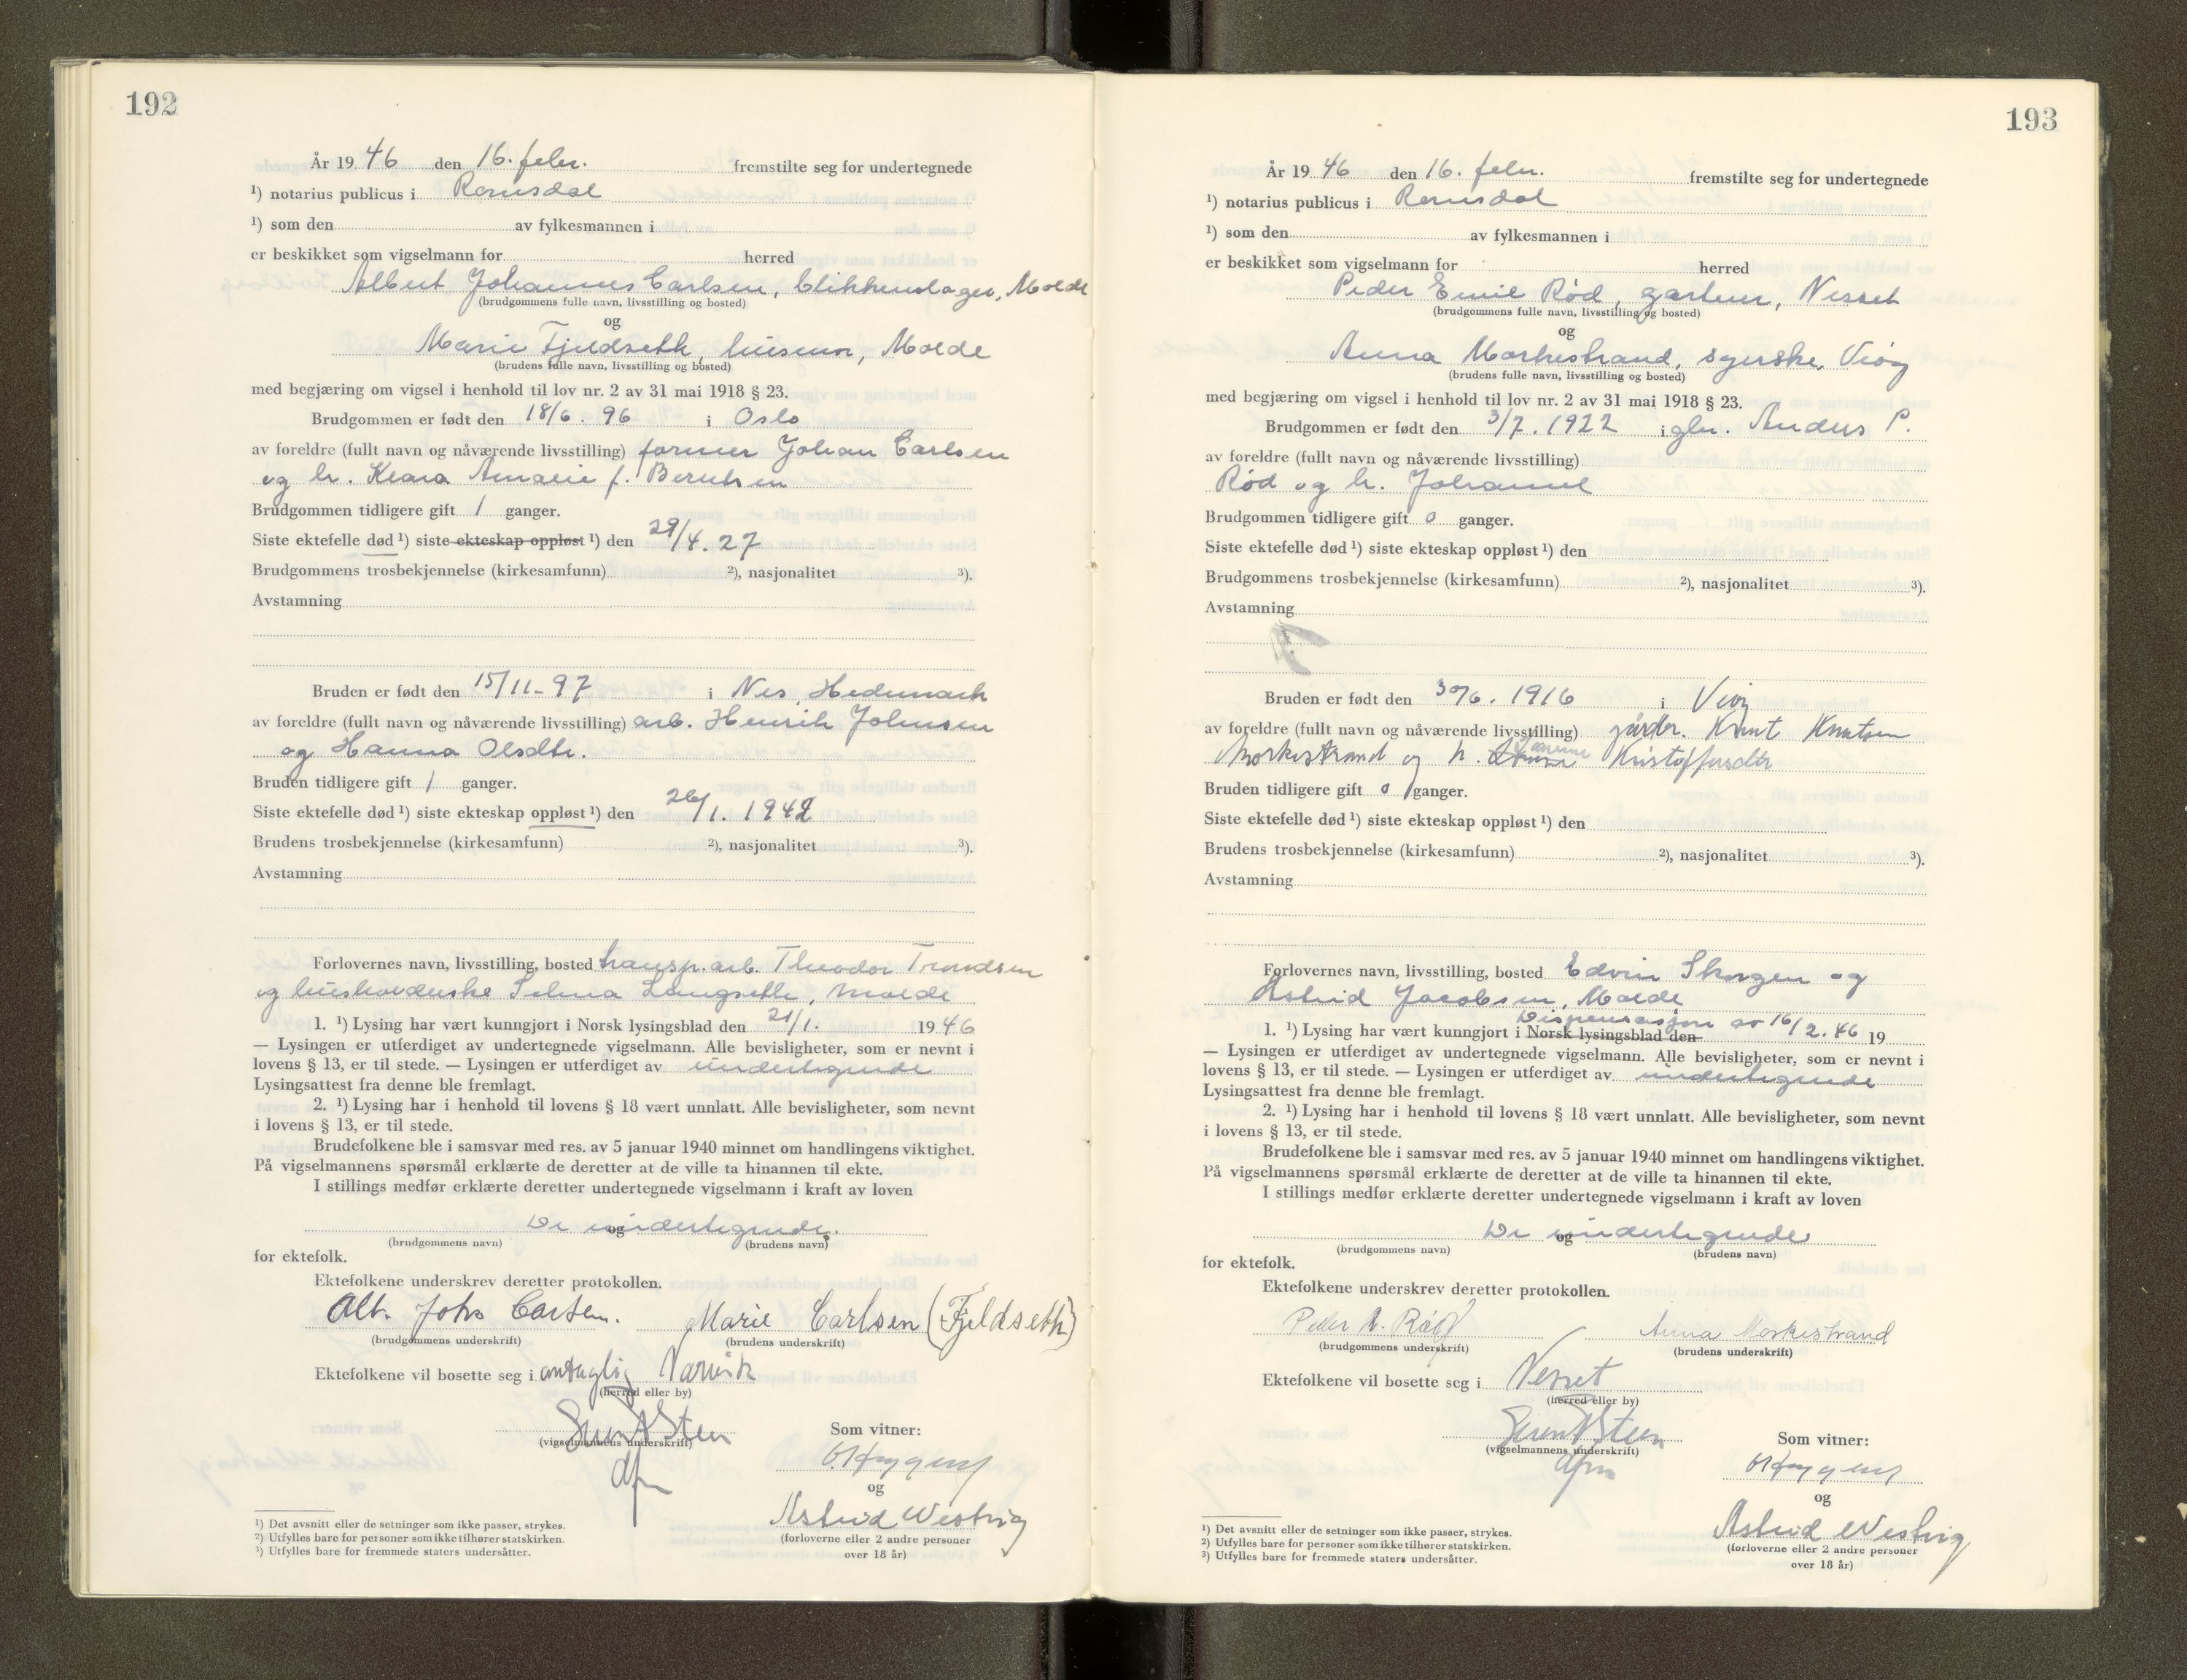 192
År 19 46 den 16. febr. fremstilte seg for undertegnede
¹) notarius publicus i Romsdal
¹) som den av fylkesmannen i
er beskikket som vigselmann for herred
Albert Johannes Carlsen, blikkenslager, Molde
(brudgommens fulle navn, livsstilling og bosted)
og
Marie Fjeldseth, husmor, Molde
(brudens fulle navn, livsstilling og bosted)
med begjæring om vigsel i henhold til lov nr. 2 av 31 mai 1918 § 23.
Brudgommen er født den 18/6. 96 i Oslo
av foreldre (fullt navn og nåværende livsstilling) former Johan Carlsen
og h. Klara Amalie f. Berntsen
Brudgommen tidligere gift 1 ganger.
Siste ektefelle død ¹) siste ekteskap oppløst ¹) den 29/4. 27
Brudgommens trosbekjennelse (kirkesamfunn) ²), nasjonalitet ³).
Avstamning
Bruden er født den 15/11-97 i Nes, Hedemark
av foreldre (fullt navn og nåværende livsstilling) arb. Henrik Johnsen
og Hanna Olsdtr.
Bruden tidligere gift 1 ganger.
Siste ektefelle død ¹) siste ekteskap oppløst ¹) den 26/1. 1942
Brudens trosbekjennelse (kirkesamfunn) ²), nasjonalitet ³).
Avstamning
Forlovernes navn, livsstilling, bosted transp.arb. Theodor Trondsen
og husholderske Selma Langseth, Molde
1. ¹) Lysing har vært kunngjort i Norsk lysingsblad den 21/1. 19 46
— Lysingen er utferdiget av undertegnede vigselmann. Alle bevisligheter, som er nevnt i
lovens § 13, er til stede. — Lysingen er utferdiget av undertegnede
Lysingsattest fra denne ble fremlagt.
2. ¹) Lysing har i henhold til lovens § 18 vært unnlatt. Alle bevisligheter, som nevnt
i lovens § 13, er til stede.
Brudefolkene ble i samsvar med res. av 5 januar 1940 minnet om handlingens viktighet.
På vigselmannens spørsmål erklærte de deretter at de ville ta hinannen til ekte.
I stillings medfør erklærte deretter undertegnede vigselmann i kraft av loven
De undertegnede.
og
(brudgommens navn) (brudens navn)
for ektefolk.
Ektefolkene underskrev deretter protokollen.
Alb. Johs Carlsen. Marie Carlsen (Fjeldseth)
(brudgommens underskrift) (brudens underskrift)
Ektefolkene vil bosette seg i antaglig Narvik
(herred eller by)
(vigselmannens underskrift) Som vitner:
dfm
og
Astrid Westvig
(forloverne eller 2 andre personer
over 18 år)
¹) Det avsnitt eller de setninger som ikke passer, strykes.
²) Utfylles bare for personer som ikke tilhører statskirken.
³) Utfylles bare for fremmede staters undersåtter.
193
År 19 46 den 16. febr. fremstilte seg for undertegnede
¹) notarius publicus i Romsdal
¹) som den av fylkesmannen i
er beskikket som vigselmann for herred
Peder Emil Rød, gartner, Nesset
(brudgommens fulle navn, livsstilling og bosted)
og
Anna Morkestrand, syerske, Veøy
(brudens fulle navn, livsstilling og bosted)
med begjæring om vigsel i henhold til lov nr. 2 av 31 mai 1918 § 23.
Brudgommen er født den 3/7. 1922 i gbr. Anders P.
av foreldre (fullt navn og nåværende livsstilling)
Rød og h. Johanne
Brudgommen tidligere gift 0 ganger.
Siste ektefelle død ¹) siste ekteskap oppløst ¹) den
Brudgommens trosbekjennelse (kirkesamfunn) ²), nasjonalitet ³).
Avstamning
Bruden er født den 30/6. 1916 i Veøy
av foreldre (fullt navn og nåværende livsstilling) gårdbr. Knut Knutsen
Morkestrand og h. Kristoffersdtr
Bruden tidligere gift 0 ganger.
Siste ektefelle død ¹) siste ekteskap oppløst ¹) den
Brudens trosbekjennelse (kirkesamfunn) ²), nasjonalitet ³).
Avstamning
Forlovernes navn, livsstilling, bosted Edvin Skorgen og
Astrid Jacobsen, Molde
Dispensasjon av 16/2. 46
1. ¹) Lysing har vært kunngjort i Norsk lysingsblad den 19
— Lysingen er utferdiget av undertegnede vigselmann. Alle bevisligheter, som er nevnt i
lovens § 13, er til stede. — Lysingen er utferdiget av undertegnede
Lysingsattest fra denne ble fremlagt.
2. ¹) Lysing har i henhold til lovens § 18 vært unnlatt. Alle bevisligheter, som nevnt
i lovens § 13, er til stede.
Brudefolkene ble i samsvar med res. av 5 januar 1940 minnet om handlingens viktighet.
På vigselmannens spørsmål erklærte de deretter at de ville ta hinannen til ekte.
I stillings medfør erklærte deretter undertegnede vigselmann i kraft av loven
De undertegnede
og
(brudgommens navn) (brudens navn)
for ektefolk.
Ektefolkene underskrev deretter protokollen.
Peder Rød Anna Morkestrand
(brudgommens underskrift) (brudens underskrift)
Ektefolkene vil bosette seg i Nesset
(herred eller by)
(vigselmannens underskrift) Som vitner:
dfm
og
Astrid Westvig
(forloverne eller 2 andre personer
over 18 år)
¹) Det avsnitt eller de setninger som ikke passer, strykes.
²) Utfylles bare for personer som ikke tilhører statskirken.
³) Utfylles bare for fremmede staters undersåtter.